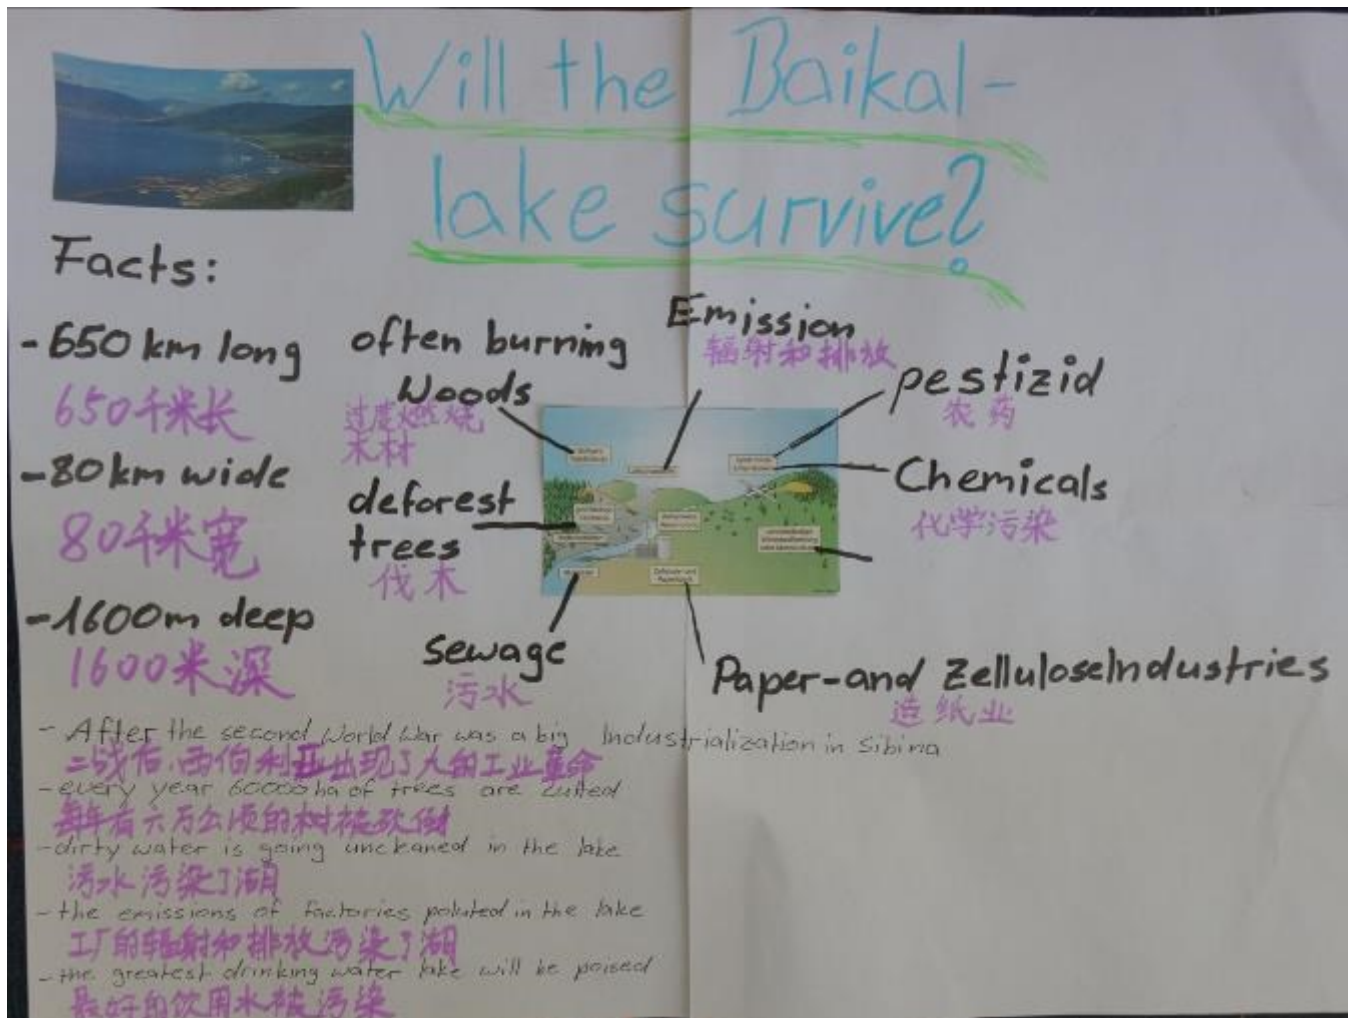 Will the Baikal-
lake survive?
Facts:
-650 km long
650千米长
-80 km wide
80千米宽
-1600m deep
1600米深
often burning
Woods
过度燃烧
木材
deforest
trees
伐木
Sewage
污水
Emission
辐射和排放
pestizid
农药
Chemicals
化学污染
Paper-and ZelluloseIndustries
造纸业
- After the second World War was a big Industrialization in Sibiria
二战后,西伯利亚出现了大的工业革命
- every year 60000 ha of trees are cutted
每年有六万公顷的树被砍倒
- dirty water is going uncleaned in the lake
污水污染了湖
- the emissions of factories poluted in the lake
工厂的辐射和排放污染了湖
- the greatest drinking water lake will be poised
最好的饮用水被污染